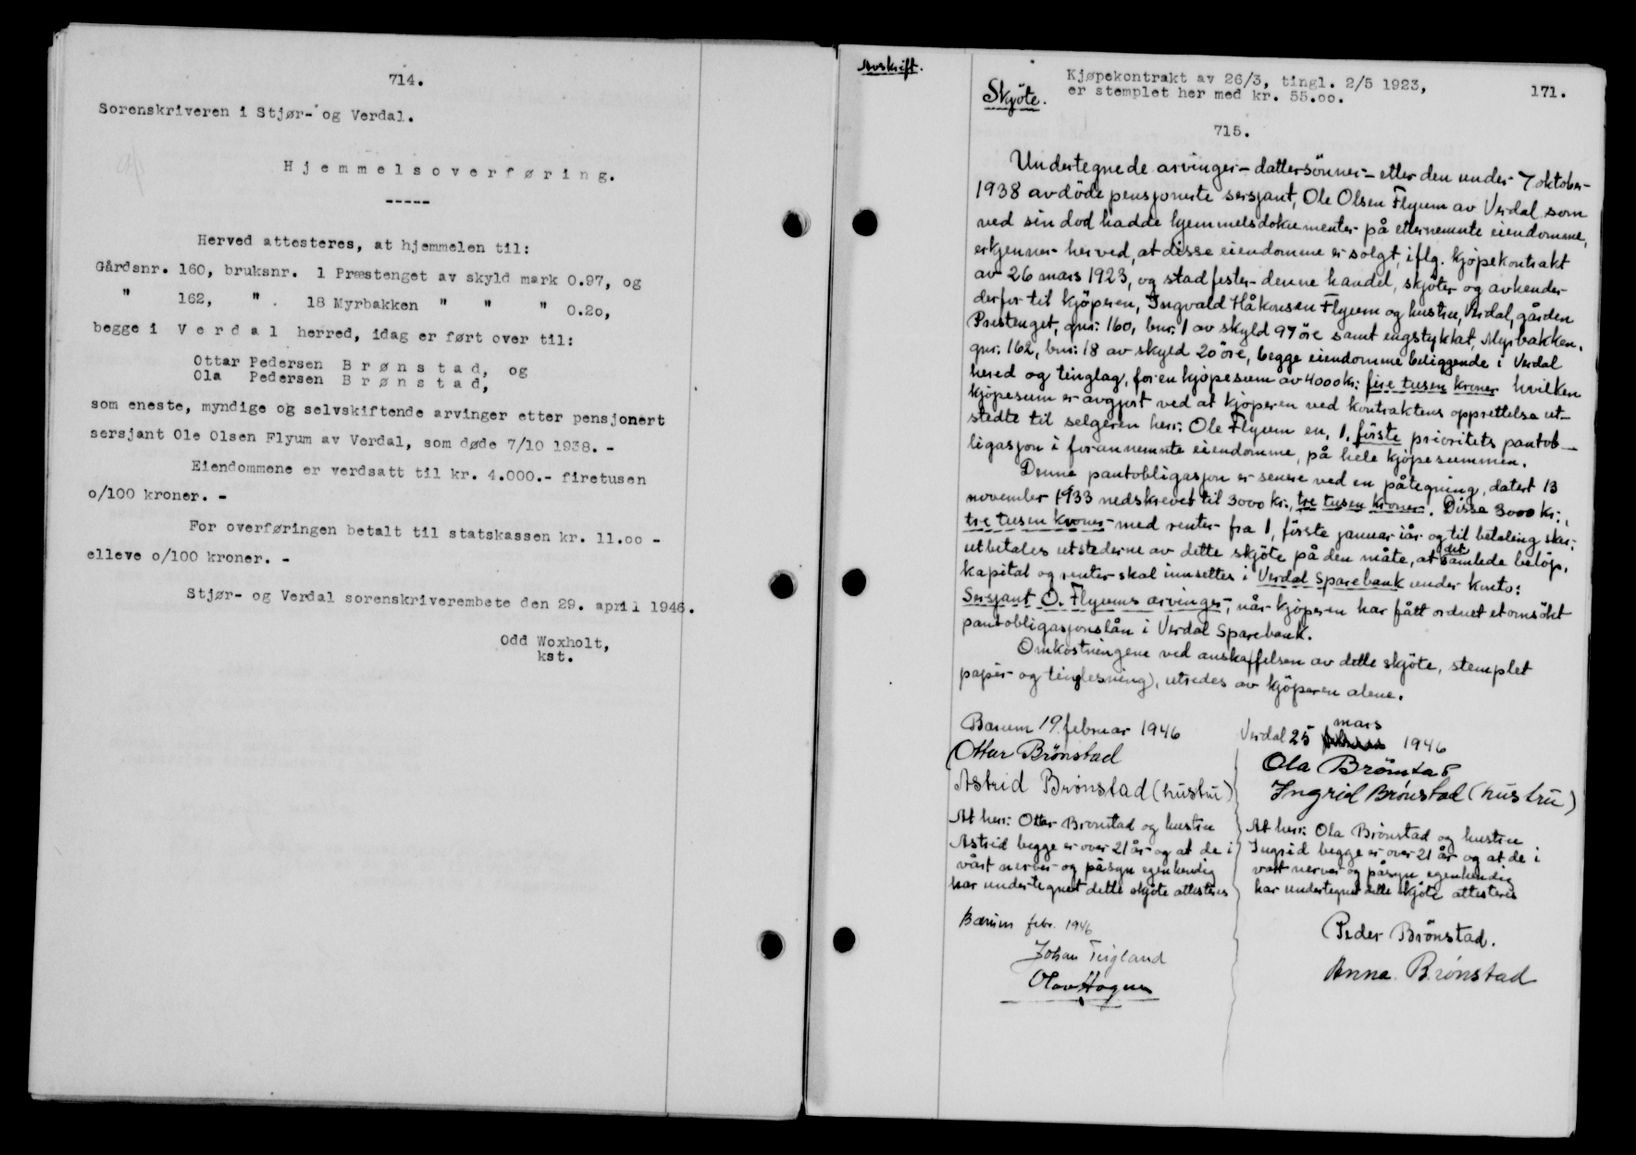 714.
Sorenskriveren i Stjør- og Verdal.
Hjemmelsoverføring.
-----
Herved attesteres, at hjemmelen til:
Gårdsnr. 160, bruksnr. 1 Præstenget av skyld mark 0.97, og
" 162, " . 18 Myrbakken " " " 0.20,
begge i Verdal herred, idag er ført over til:
Ottar Pedersen Brønstad, og
Ola Pedersen Brønstad,
som eneste, myndige og selvskiftende arvinger etter pensjonert
sersjant Ole Olsen Flyum av Verdal, som døde 7/10 1938. -
Eiendommene er verdsatt til kr. 4.000.- firetusen
o/100 kroner. -
For overføringen betalt til statskassen kr. 11.00 -
elleve o/100 kroner. -
Stjør- og Verdal sorenskriverembete den 29. april 1946.
Odd Woxholt,
kst.
Avskrift.
Kjøpekontrakt av 26/3, tingl. 2/5 1923,
er stemplet her med kr. 55.00.
171.
Skjöte.
715.
Undertegnede arvinger - dattersönner - etter den under 7 oktober
1938 avdöde pensjonerte sersjant, Ole Olsen Flyum av Verdal som
ved sin död hadde hjemmelsdokumenter på etternemnte eiendomme,
erkjenner herved, at disse eiendomme er solgt, iflg. kjöpekontrakt
av 26 mars 1923, og stadfester denne handel, skjöter og avhender
derfor til kjöperen, Ingvald Håkonsen Flyum og hustru, Verdal, gården
Prestenget, gnr: 160, bnr. 1 av skyld 97 öre samt engstykket, Myrbakken,
gnr: 162, bnr: 18 av skyld 20 öre, begge eiendomme beliggende i Verdal
hered og tinglag, for en kjöpesum av 4000 kr: fire tusen kroner hvilken
kjöpesum er avgjort ved at kjöperen ved kontraktens opprettelse ut-
stedte til selgeren herr: Ole Flyum en, 1, förste prioritets pantob-
ligasjon i forannemnte eiendomme, på hele kjöpesummen.
Denne pantobligasjon er senere ved en påtegning, datert 13
november 1933 nedskrevet til 3000 kr., tre tusen kroner. Disse 3000 kr:,
tre tusen kroner med renter fra 1, förste januar iår og til betaling skjer,
utbetales utstederne av dette skjöte på den måte, at det samlede belöp,
kapital og renter skal innsettes i Verdal Sparebank under konto:
Sersjant O. Flyums arvinger, når kjöperen har fått ordnet et omsökt
pantobligasjonslån i Verdal Sparebank.
Omkostningene ved anskaffelsen av dette skjöte, stemplet
papir og tinglesning), utredes av kjöperen alene.
Bærum 19 februar 1946
Ottar Brönstad
Astrid Brönstad (hustru)
At herr: Ottar Brönstad og hustru
Astrid begge er over 21 år og at de i
vårt nerver og påsyn egenhendig
har undertegnet dette skjöte attesteres
Bærum febr. 1946
Johan Teigland
Olav Hogne
Verdal 25 mars 1946
Ola Brönstad
Ingrid Brönstad (hustru)
At herr: Ola Brönstad og hustru
Ingrid begge er over 21 år og at de i
vårt nerver og påsyn egenhendig
har undertegnet dette skjöte attesteres
Peder Brönstad.
Anna Brönstad